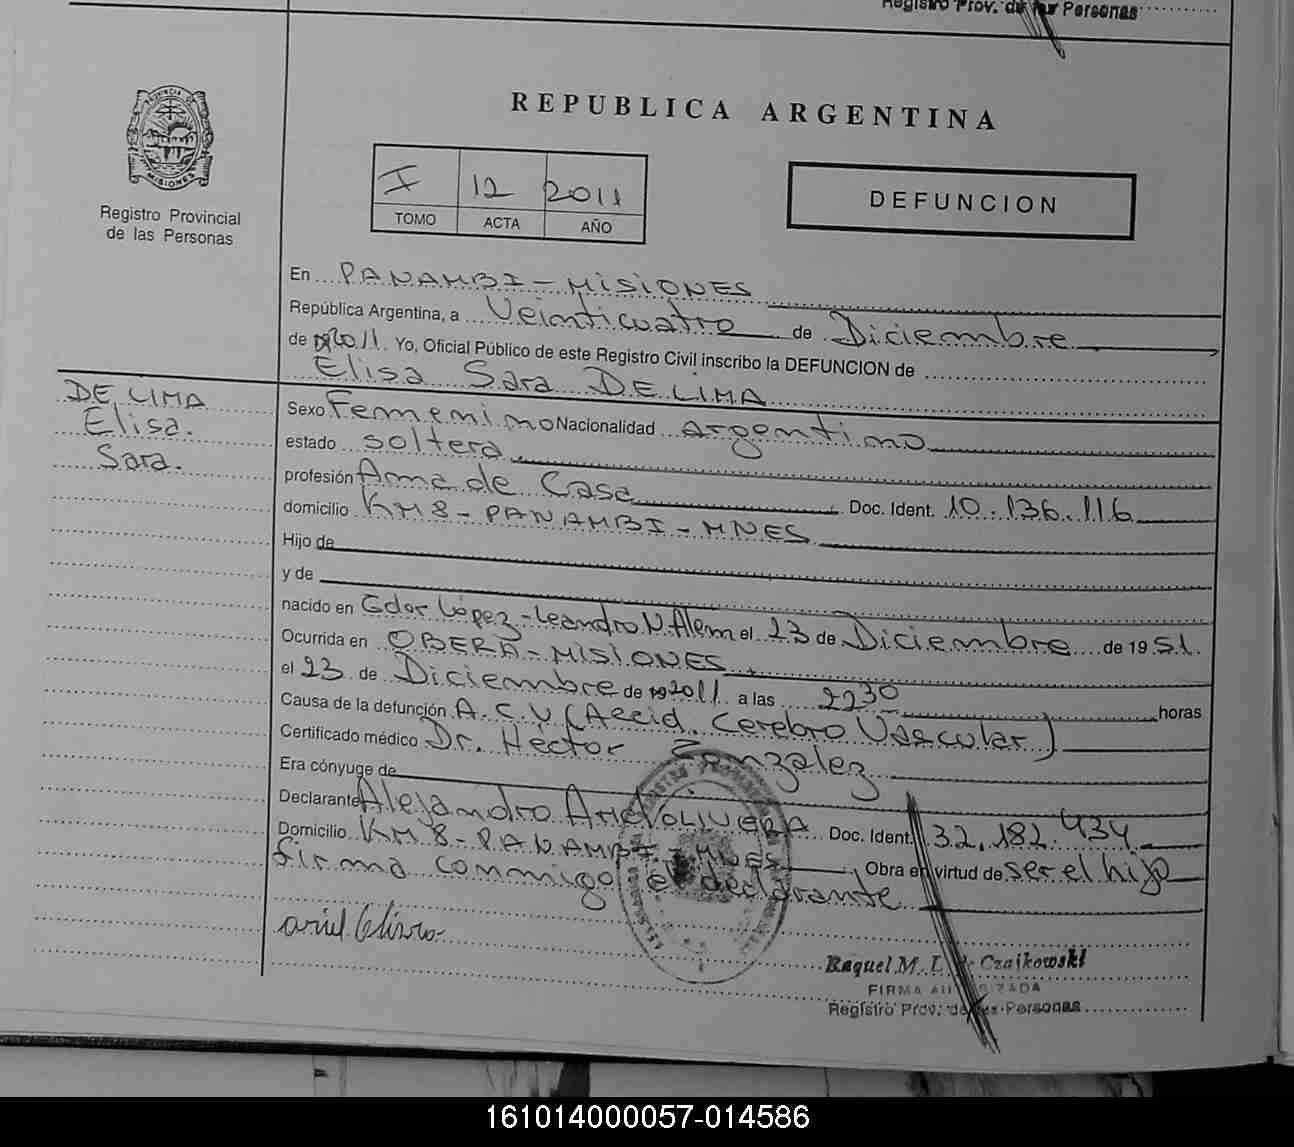 Registro Prov. de las Personas
PROVINCIA DE
MISIONES
Registro Provincial
de las Personas
REPUBLICA ARGENTINA
I 12 2011
TOMO ACTA AÑO
DEFUNCION
En PANAMBI-MISIONES
República Argentina, a Veinticuatro de Diciembre
de 2011. Yo, Oficial Público de este Registro Civil inscribo la DEFUNCION de
Elisa Sara DE LIMA
DE LIMA
Elisa.
Sara.
Sexo Femenino Nacionalidad Argentino
estado soltera
profesión Ama de Casa Doc. Ident. 10.136.116
domicilio KM 8-PANAMBI-MNES
Hijo de
y de
nacido en Gdor López-Leandro N. Alem el 23 de Diciembre de 1951.
Ocurrida en OBERA-MISIONES
el 23 de Diciembre de 2011 a las 2230 horas
Causa de la defunción A.C.V (Accid. Cerebro Vascular)
Certificado médico Dr. Hector Gonzalez
Era cónyuge de
Declarante Alejandro Ariel OLIVERA Doc. Ident. 32.182.434
Domicilio KM 8-PANAMBI-MNES Obra en virtud de ser el hijo
firma conmigo el declarante
ariel Olivera
Raquel M. L. de Czajkowski
FIRMA AUTORIZADA
Registro Prov. de las Personas
161014000057-014586